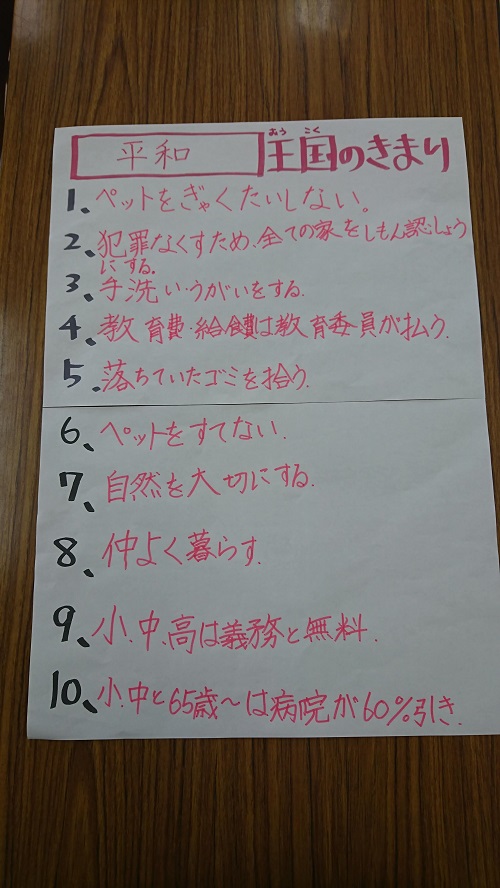 平和 王国のきまり
おう こく
1、ペットをぎゃくたいしない。
2、犯罪なくすため、全ての家をしもん認しょう
にする。
3、手洗い・うがいをする.
4、教育費・給食費は教育委員が払う.
5、落ちていたゴミを拾う.
6、ペットをすてない.
7、自然を大切にする.
8、仲よく暮らす.
9、小.中.高は義務と無料.
10、小.中と65歳〜は病院が60%引き.